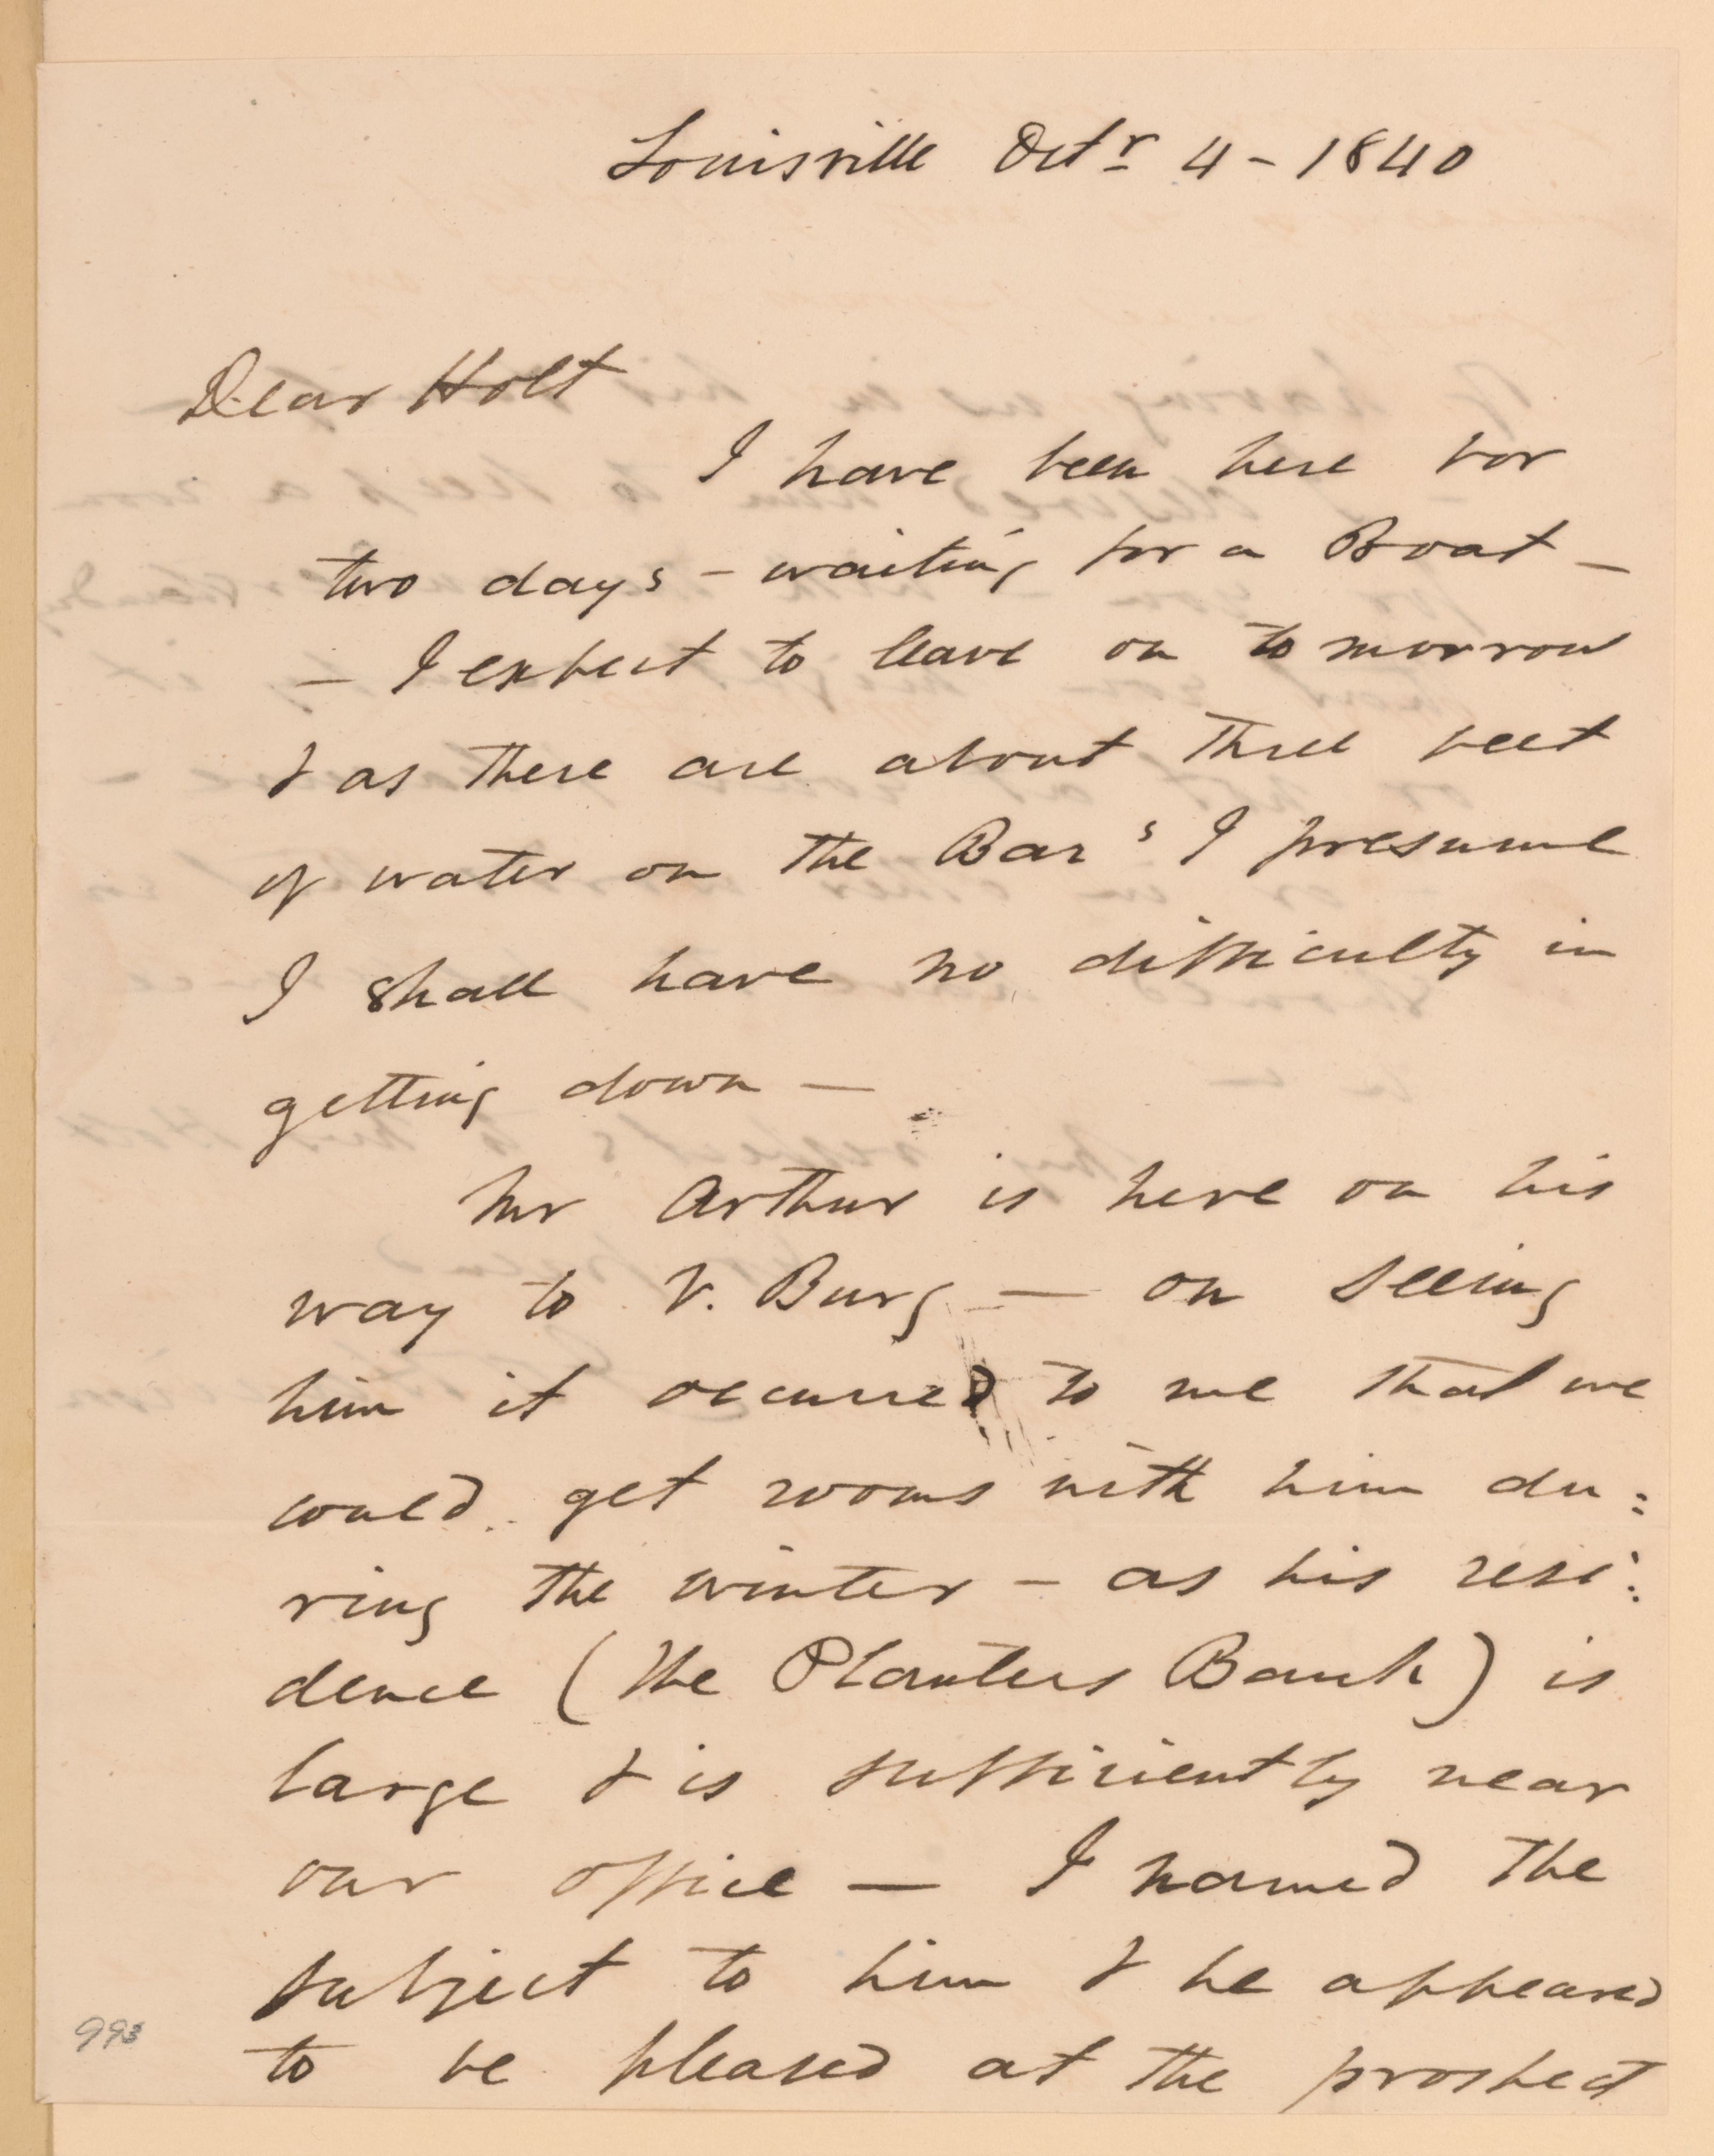 Louisville Octr 4 - 1840
Dear Holt
I have been here for
two days - waiting for a Boat -
- I expect to leave on to morrow
& as there are about three feet
of water on the Bar's I presume
I shall have no difficulty in
getting down -
Mr Arthur is here on his
way to V. Burg - on seeing
him it occurred to me that we
could get rooms with him du:
ring the winter - as his resi:
dence (the Planters Bank) is
large & is sufficiently near
our office - I named the
subject to him & he appeared
to be pleased at the prospect
993